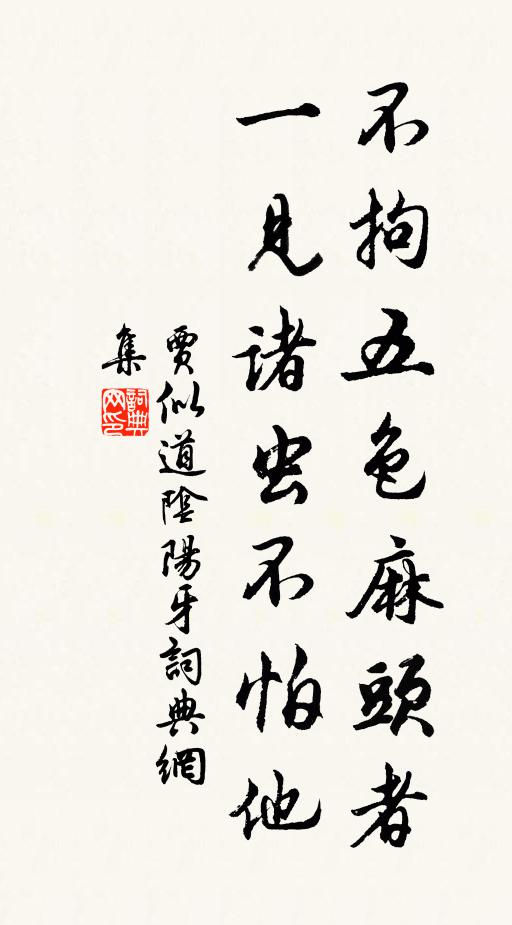 不拘五色麻頭者
一見諸虫不怕他
賈似道陰陽牙詞典網
集
詞典
网印